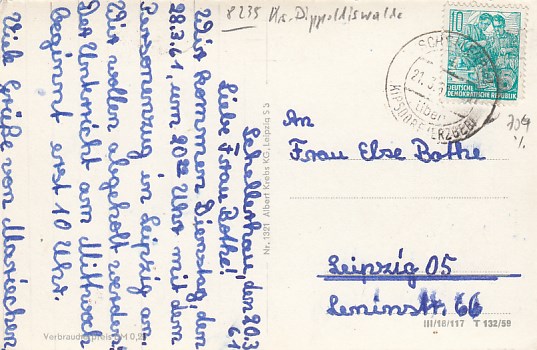 8235 Krs. Dippoldiswalde
Schellerhau, den 20.3.
61
Liebe Frau Bothe!
Wir kommen Dienstag, den
28.3.61, um 20 02 Uhr mit dem
Personenzug in Leipzig an.
Wir wollen abgeholt werden.
Der Unterricht am Mittwoch
beginnt erst 10 Uhr.
Viele Grüße von Mariechen
Nr. 1321 Albert Krebs KG, Leipzig S 3
Verbraucherpreis DM 0,2
10
DEUTSCHE
DEMOKRATISCHE REPUBLIK
über
KIPSDORF (ERZGEB)
704
An
Frau Else Bothe
Leipzig O5
Leninstr. 66
III/18/117 T 132/59